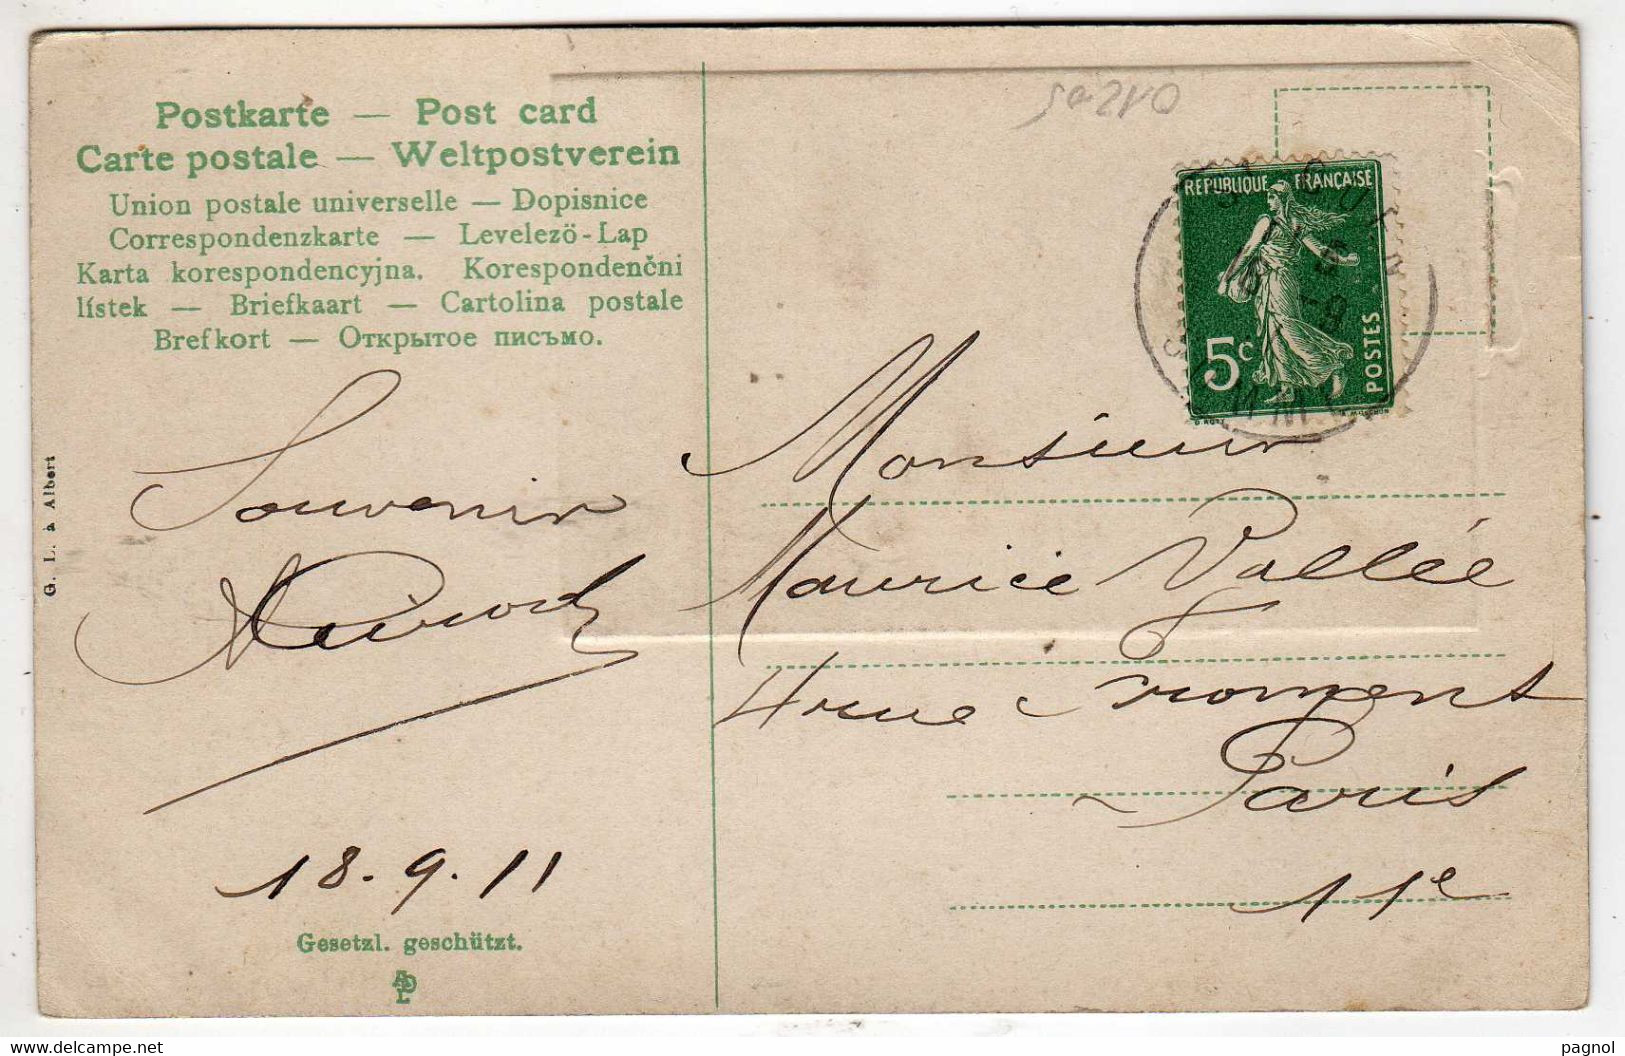 Postkarte — Post card
Carte postale — Weltpostverein
Union postale universelle — Dopisnice
Correspondenzkarte — Levelezö-Lap
Karta korespondencyjna. Korespondenční
lístek — Briefkaart — Cartolina postale
Brefkort — Открытое письмо.
G. L. à Albert
Souvenir
18.9.11
Gesetzl. geschützt.
REPUBLIQUE FRANÇAISE
5c
POSTES
Monsieur
Maurice Vallée
4 rue Froment
Paris
11e
delcampe.net
pagnol